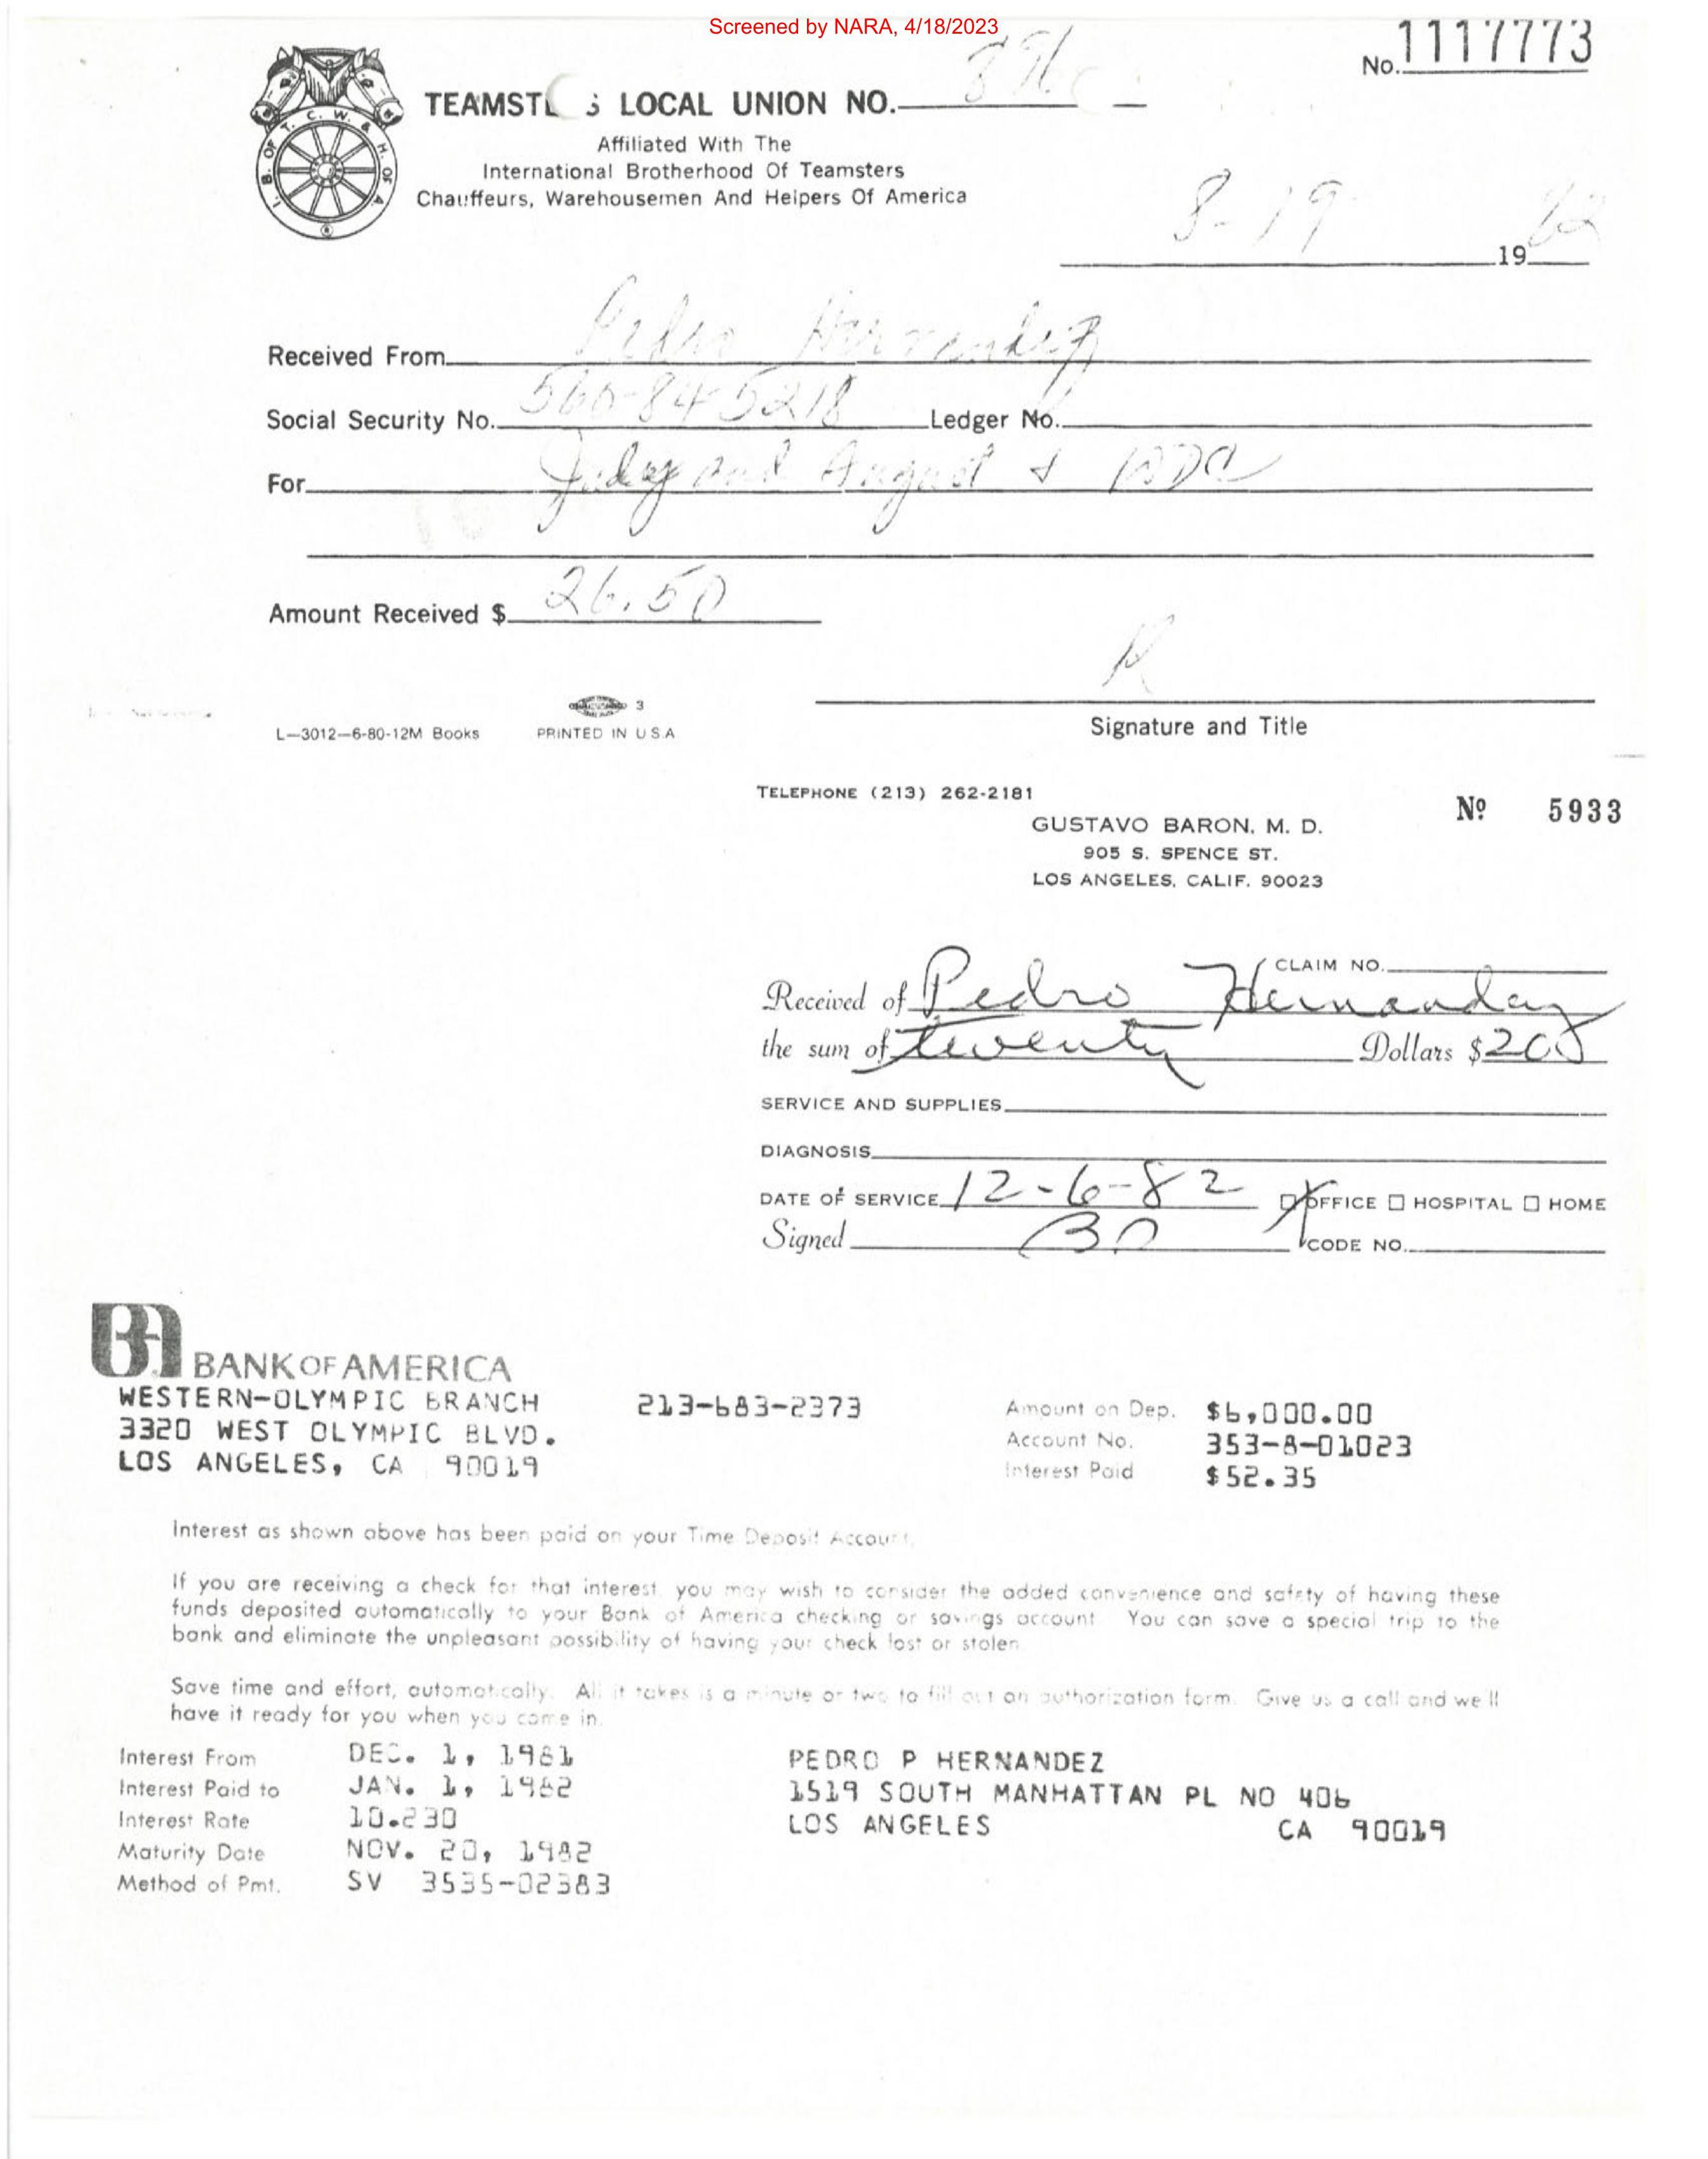 Screened by NARA, 4/18/2023
No. 1117773
TEAMST S LOCAL UNION NO.
Affiliated With The
International Brotherhood Of Teamsters
Chauffeurs, Warehousemen And Helpers Of America
I. B. OF T. C. W. & H. OF A.
8-19 19 82
Received From Pedro Hernandez
Social Security No. 560-84-5218 Ledger No.
For July and August &
Amount Received $ 26.50
R
3
L-3012-6-80-12M Books PRINTED IN U S A
Signature and Title
TELEPHONE (213) 262-2181
Nº 5933
GUSTAVO BARON, M. D.
905 S. SPENCE ST.
LOS ANGELES, CALIF. 90023
CLAIM NO.
Received of Pedro Hernandez
the sum of twenty Dollars $20
SERVICE AND SUPPLIES
DIAGNOSIS
DATE OF SERVICE 12-6-82 OFFICE HOSPITAL HOME
Signed CODE NO.
BANK OF AMERICA
WESTERN-OLYMPIC BRANCH 213-683-2373
3320 WEST OLYMPIC BLVD.
LOS ANGELES, CA 90019
Amount on Dep. $6,000.00
Account No. 353-8-01023
Interest Paid $52.35
Interest as shown above has been paid on your Time Deposit Account.
If you are receiving a check for that interest, you may wish to consider the added convenience and safety of having these
funds deposited automatically to your Bank of America checking or savings account. You can save a special trip to the
bank and eliminate the unpleasant possibility of having your check lost or stolen.
Save time and effort, automatically. All it takes is a minute or two to fill out an authorization form. Give us a call and we'll
have it ready for you when you come in.
Interest From DEC. 1, 1981
Interest Paid to JAN. 1, 1982
Interest Rate 10.230
Maturity Date NOV. 20, 1982
Method of Pmt. SV 3535-02383
PEDRO P HERNANDEZ
1519 SOUTH MANHATTAN PL NO 406
LOS ANGELES CA 90019